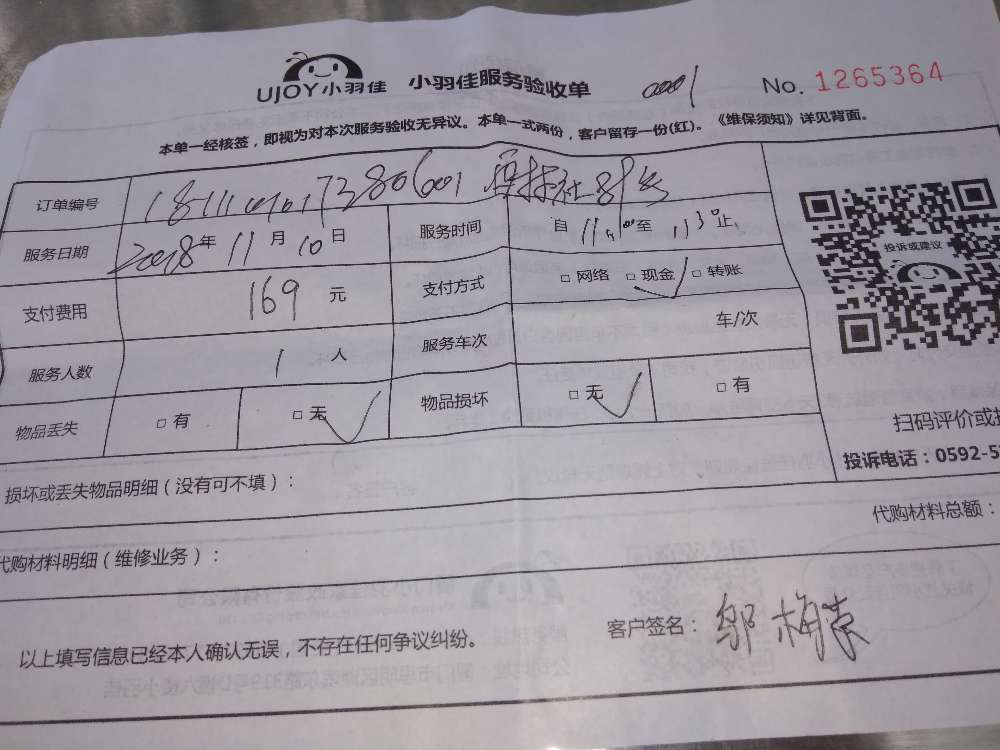 UJOY小羽佳 小羽佳服务验收单 0001 No. 1265364
本单一经核签，即视为对本次服务验收无异议。本单一式两份，客户留存一份(红)。《维保须知》详见背面。
订单编号
服务日期 2018年 11月 10日 服务时间 自 至 止
支付费用 169 元 支付方式 □ 网络 □ 现金 ✓ □ 转账
服务人数 1 人 服务车次 车/次
物品丢失 □ 有 □ 无 ✓ 物品损坏 □ 无 ✓ □ 有
投诉或建议
扫码评价或
投诉电话：0592-5
损坏或丢失物品明细（没有可不填）：
代购材料明细（维修业务）：
代购材料总额：
以上填写信息已经本人确认无误，不存在任何争议纠纷。
客户签名：邬梅